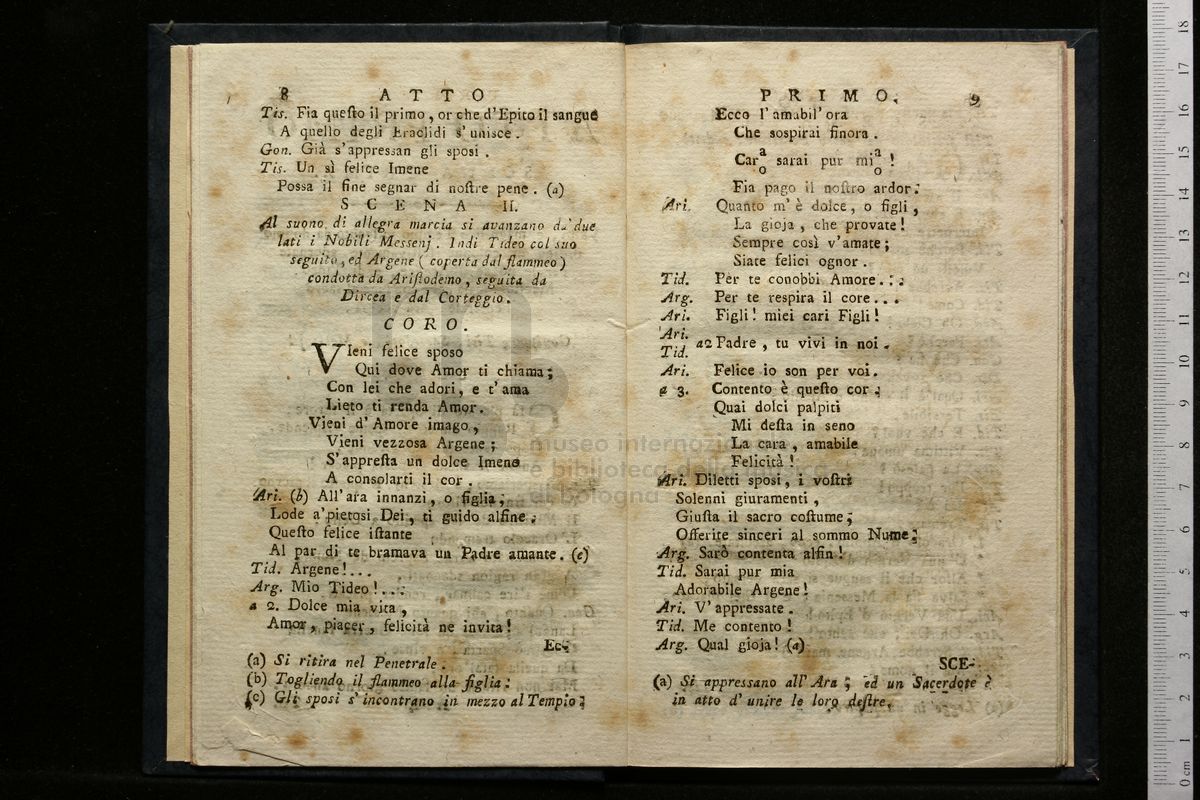 8 ATTO
Tis. Fia queſto il primo, or che d'Epito il sangue
A quello degli Eraclidi s'unisce.
Gon. Già s'appressan gli sposi.
Tis. Un sì felice Imene
Possa il fine segnar di noſtre pene. (a)
SCENA II.
Al suono di allegra marcia si avanzano da' due
lati i Nobili Messenj. Indi Tideo col suo
seguito, ed Argene (coperta dal flammeo)
condotta da Ariſtodemo, seguita da
Dircea e dal Corteggio.
CORO.
VIeni felice sposo
Qui dove Amor ti chiama;
Con lei che adori, e t'ama
Lieto ti renda Amor.
Vieni d'Amore imago,
Vieni vezzosa Argene;
S'appreſta un dolce Imene
A consolarti il cor.
Ari. (b) All'ara innanzi, o figlia,
Lode a'pietosi Dei, ti guido alfine.
Queſto felice iſtante
Al par di te bramava un Padre amante. (c)
Tid. Argene!...
Arg. Mio Tideo!...
a 2. Dolce mia vita,
Amor, piacer, felicità ne invita!
Ec-
(a) Si ritira nel Penetrale.
(b) Togliendo il flammeo alla figlia.
(c) Gli sposi s'incontrano in mezzo al Tempio.
PRIMO. 9
Ecco l'amabil'ora
Che sospirai finora.
Car a o sarai pur mi a o !
Fia pago il noſtro ardor.
Ari. Quanto m'è dolce, o figli,
La gioja, che provate!
Sempre così v'amate;
Siate felici ognor.
Tid. Per te conobbi Amore...
Arg. Per te respira il core...
Ari. Figli! miei cari Figli!
Ari.
Tid. a2 Padre, tu vivi in noi.
Ari. Felice io son per voi.
a 3. Contento è queſto cor.
Quai dolci palpiti
Mi deſta in seno
La cara, amabile
Felicità!
Ari. Diletti sposi, i voſtri
Solenni giuramenti,
Giuſta il sacro coſtume,
Offerite sinceri al sommo Nume.
Arg. Sarò contenta alfin!
Tid. Sarai pur mia
Adorabile Argene!
Ari. V'appressate.
Tid. Me contento!
Arg. Qual gioja! (a)
SCE-
(a) Si appressano all'Ara; ed un Sacerdote è
in atto d'unire le loro deſtre.
museo internazionale
e biblioteca della musica
di bologna
0 cm 1 2 3 4 5 6 7 8 9 10 11 12 13 14 15 16 17 18